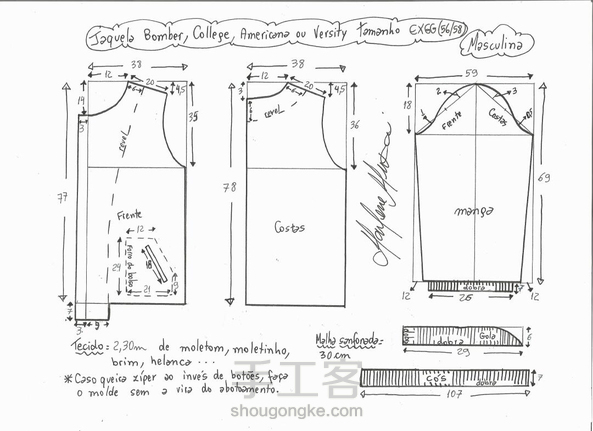 Jaqueta Bomber, College, Americana ou Versity tamanho EXGG (56/58)
Masculina
38
12
20
4,5
6
14
3
35
revel
77
Frente
12
Forro do bolso
24
18
19
21
7
3
9
38
12
20
4,5
6
3
6
revel
36
78
Costas
59
18
2
3
1
Frente
Costas
69
manga
12
dobra
7
12
26
Marlene Mukai
Tecido: 2,30m de moletom, moletinho,
brim, helanca ...
* Caso queira zíper ao invés de botões, faça
o molde sem a vira do abotoamento.
Malha sanfonada:
30cm
dobra
dobra
Gola
6
29
cós
dobra
7
107
手工客
shougongke.com